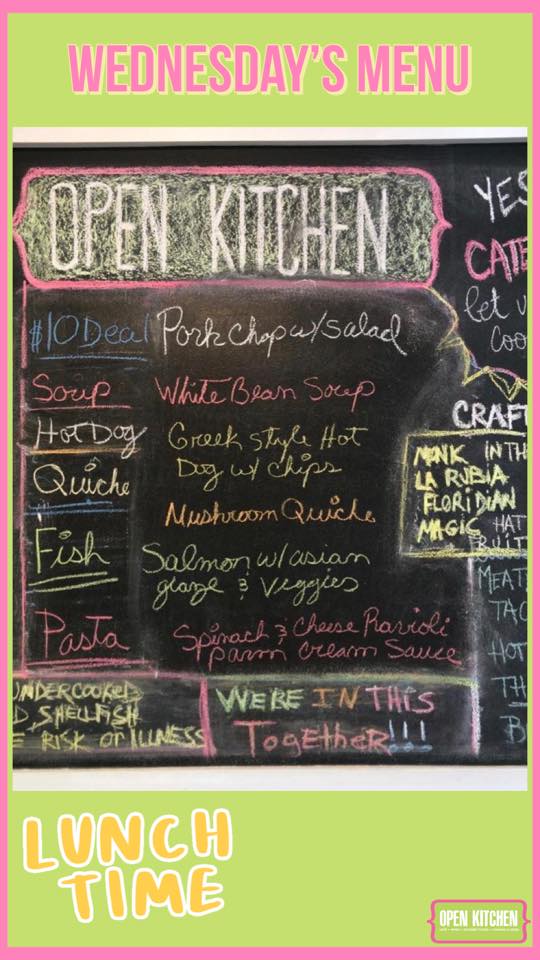 WEDNESDAY'S MENU
OPEN KITCHEN
$10 Deal Pork Chop w/ salad
Soup White Bean Soup
Hot Dog Greek style Hot
Dog w/ chips
Quiche Mushroom Quiche
Fish Salmon w/ asian
glaze & Veggies
Pasta Spinach & Cheese Ravioli
parm cream Sauce
UNDERCOOKED
SHELLFISH
RISK OF ILLNESS
WERE IN THIS
TogetheR!!!
YES
CATE
let
COO
CRAFT
MONK
LA RUBIA
FLORIDIAN
MAGIC HAT
IN TH
BUILT
MEAT
TAC
HOT
TH
B
LUNCH
TIME
OPEN KITCHEN